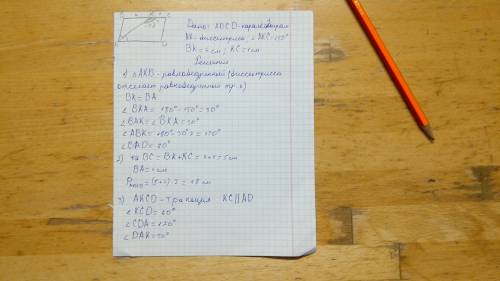 Дано: ABCD-параллелограм
AK-биссектриса; ∠AKC=150°
BK=4см; KC=1см.
Решение
1) △AKB-равнобедренный (биссектриса
отсекает равнобедренный тр.)
BK=BA
∠BKA=180°-150°=30°
∠BAK=∠BKA=30°
∠ABK=180°-30°·2=120°
∠BAD=60°
2) BC=BK+KC=
BA=4см
=18см
3) AKCD-трапеция KC||AD
∠KCD=60°
∠CDA=120°
∠DAK=30°